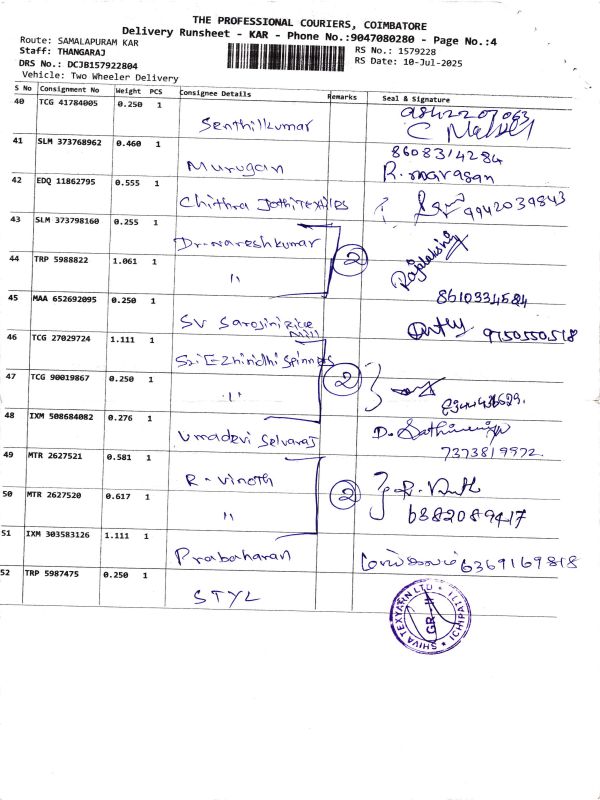 THE PROFESSIONAL COURIERS, COIMBATORE
Delivery Runsheet - KAR - Phone No.:9047080280 - Page No.:4
Route: SAMALAPURAM KAR
Staff: THANGARAJ
RS No.: 1579228
DRS No.: DCJB157922804
RS Date: 10-Jul-2025
Vehicle: Two Wheeler Delivery
S No Consignment No Weight PCS Consignee Details Remarks Seal & Signature
40 TCG 41784005 0.250 1
Senthilkumar
41 SLM 373768962 0.460 1
Murugan 8608314284
R. marasan
42 EDQ 11862795 0.555 1
Chithra Jothi Textiles 9942039843
43 SLM 373798160 0.255 1
Dr. Nareshkumar
2
44 TRP 5988822 1.061 1
"
Rajalakshmi
8610334584
45 MAA 652692095 0.250 1
SV Sarojini Rice Mill
9750550518
46 TCG 27029724 1.111 1
Sri Ezhiridhi Spinners
2
47 TCG 90019867 0.250 1
"
48 IXM 508684082 0.276 1
Umadevi Selvaraj
7373819972.
49 MTR 2627521 0.581 1
R. Vinoth
2
50 MTR 2627520 0.617 1
"
6382089417
51 IXM 303583126 1.111 1
Prabaharan 6369169818
52 TRP 5987475 0.250 1
STYL
SHIVA TEXYARN LTD
GR-II
ICHIPATTI